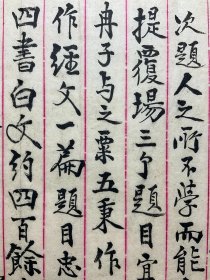 次題人之所不學而能
提覆場三了題目宜
冉子与之粟五秉作
作经文一篇題目忠
四書白文约四百餘